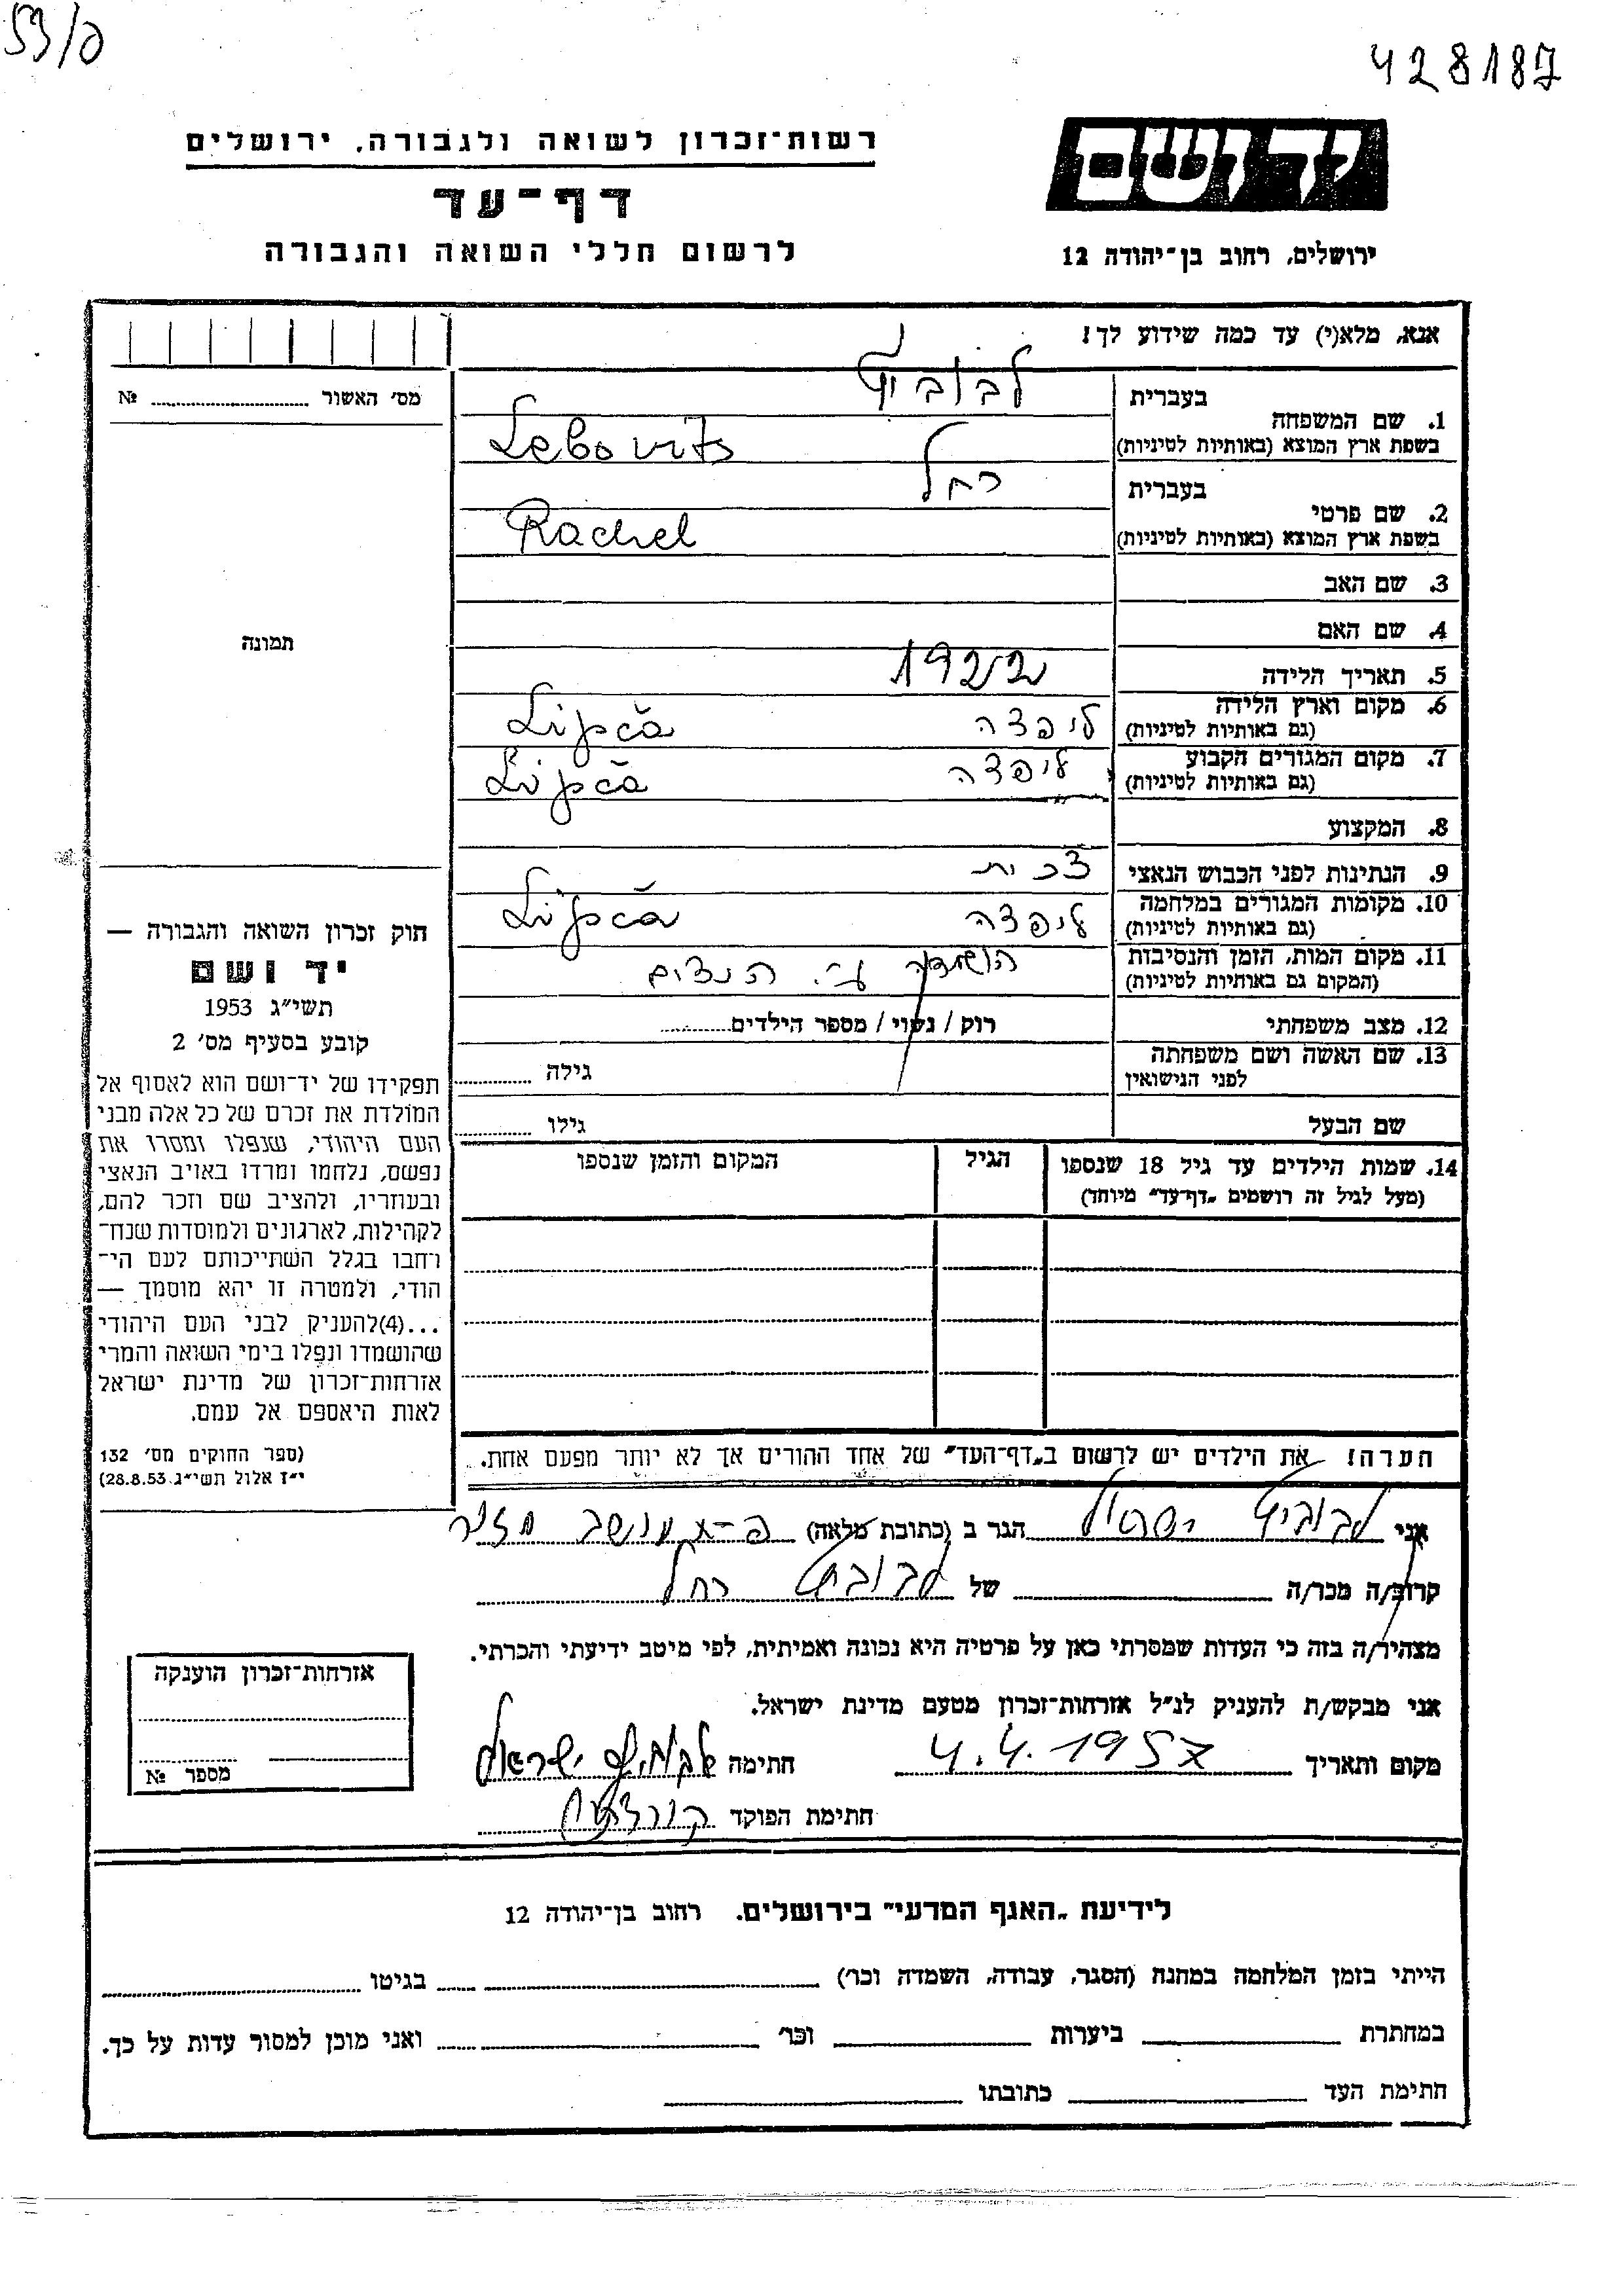 53/ם
428187
רשות־זכרון לשואה ולגבורה, ירושלים
יד ושם
דף־עד
לרשום חללי השואה והגבורה
ירושלים, רחוב בן־יהודה 12
אנא, מלא(י) עד כמה שידוע לך!
מס׳ האשור № 
1. שם המשפחה
בעברית לבוביץ
בשפת ארץ המוצא (באותיות לטיניות) Lebovits
2. שם פרטי
בעברית רחל
בשפת ארץ המוצא (באותיות לטיניות) Rachel
3. שם האב
4. שם האם
תמונה
5. תאריך הלידה 1922
6. מקום וארץ הלידה
(גם באותיות לטיניות) ליפצה Lipča
7. מקום המגורים הקבוע
(גם באותיות לטיניות) ליפצה Lipča
8. המקצוע
9. הנתינות לפני הכבוש הנאצי צכית
10. מקומות המגורים במלחמה
(גם באותיות לטיניות) ליפצה Lipča
11. מקום המות, הזמן והנסיבות
(המקום גם באותיות לטיניות) הושמדה ע״י הנצים
12. מצב משפחתי רוק / נשוי / מספר הילדים
13. שם האשה ושם משפחתה
לפני הנישואין גילה
שם הבעל גילו
14. שמות הילדים עד גיל 18 שנספו
(מעל לגיל זה רושמים „דף־עד״ מיוחד)
הגיל
המקום והזמן שנספו
חוק זכרון השואה והגבורה —
יד ושם
תשי״ג 1953
קובע בסעיף מס׳ 2
תפקידו של יד־ושם הוא לאסוף אל
המולדת את זכרם של כל אלה מבני
העם היהודי, שנפלו ומסרו את
נפשם, נלחמו ומרדו באויב הנאצי
ובעוזריו, ולהציב שם וזכר להם,
לקהילות, לארגונים ולמוסדות שנח־
רחבו בגלל השתייכותם לעם הי־
הודי, ולמטרה זו יהא מוסמך —
...(4)להעניק לבני העם היהודי
שהושמדו ונפלו בימי השואה והמרי
אזרחות־זכרון של מדינת ישראל
לאות היאספם אל עמם.
(ספר החוקים מס׳ 132
י״ז אלול תשי״ג 28.8.53)
הערה! את הילדים יש לרשום ב„דף־העד״ של אחד ההורים אך לא יותר מפעם אחת.
אני לבוביץ ישראל הגר ב (כתובת מלאה) מושב
קרוב/ה מכר/ה של לבוביץ רחל
מצהיר/ה בזה כי העדות שמסרתי כאן על פרטיה היא נכונה ואמיתית, לפי מיטב ידיעתי והכרתי.
אני מבקש/ת להעניק לנ״ל אזרחות־זכרון מטעם מדינת ישראל.
מקום ותאריך 4.4.1957 חתימה לבוביץ ישראל
חתימת הפוקד
אזרחות־זכרון הוענקה
מספר №
לידיעת „האגף המדעי״ בירושלים. רחוב בן־יהודה 12
הייתי בזמן המלחמה במחנה (הסגר, עבודה, השמדה וכו׳) בגיטו
במחתרת ביערות וכו׳ ואני מוכן למסור עדות על כך.
חתימת העד כתובתו